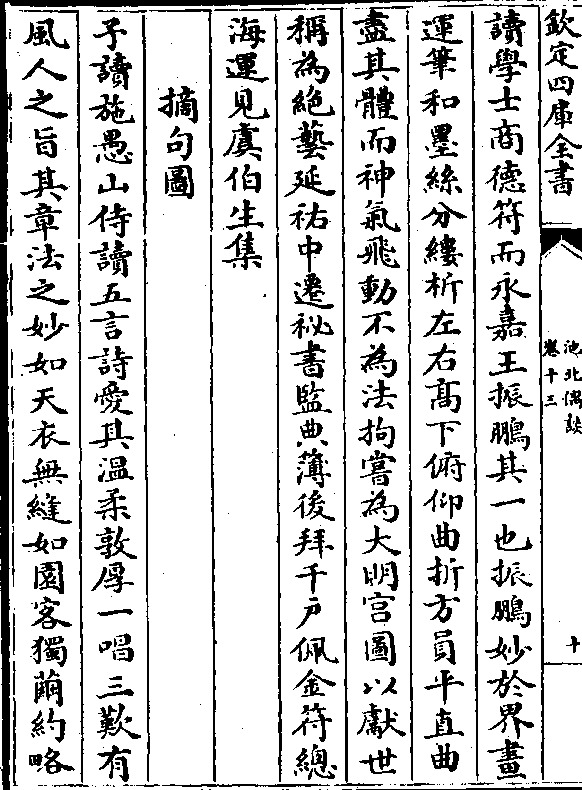 欽定四庫全書
池北偶談
卷十三
十
讀學士商德符而永嘉王振鵬其一也振鵬妙於界畫
運筆和墨絲分縷析左右髙下俯仰曲折方員平直曲
盡其體而神氣飛動不為法拘嘗為大明宫圖以獻世
稱為絶藝延祐中遷祕書監典簿後拜千户佩金符總
海運見虞伯生集
摘句圖
予讀施愚山侍讀五言詩愛其温柔敦厚一唱三歎有
風人之旨其章法之妙如天衣無縫如園客獨繭約略